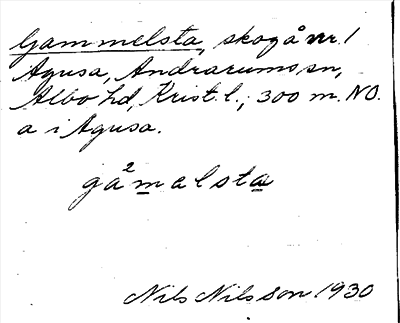 Gammelsta, skog å nr. 1
Agusa, Andrarums sn,
Albo hd, Krist. l.; 300 m. NO.
a i Agusa.
gå²malsta
Nils Nilsson 1930